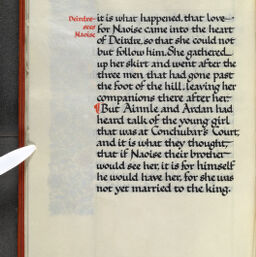 Deirdre
sees
Naoise
it is what happened, that love
for Naoise came into the heart
of Deirdre, so that she could not
but follow him. She gathered
up her skirt and went after the
three men that had gone past
the foot of the hill, leaving her
companions there after her.
¶But Ainnle and Ardan had
heard talk of the young girl
that was at Conchubar's Court,
and it is what they thought,
that if Naoise their brother
would see her, it is for himself
he would have her, for she was
not yet married to the king.